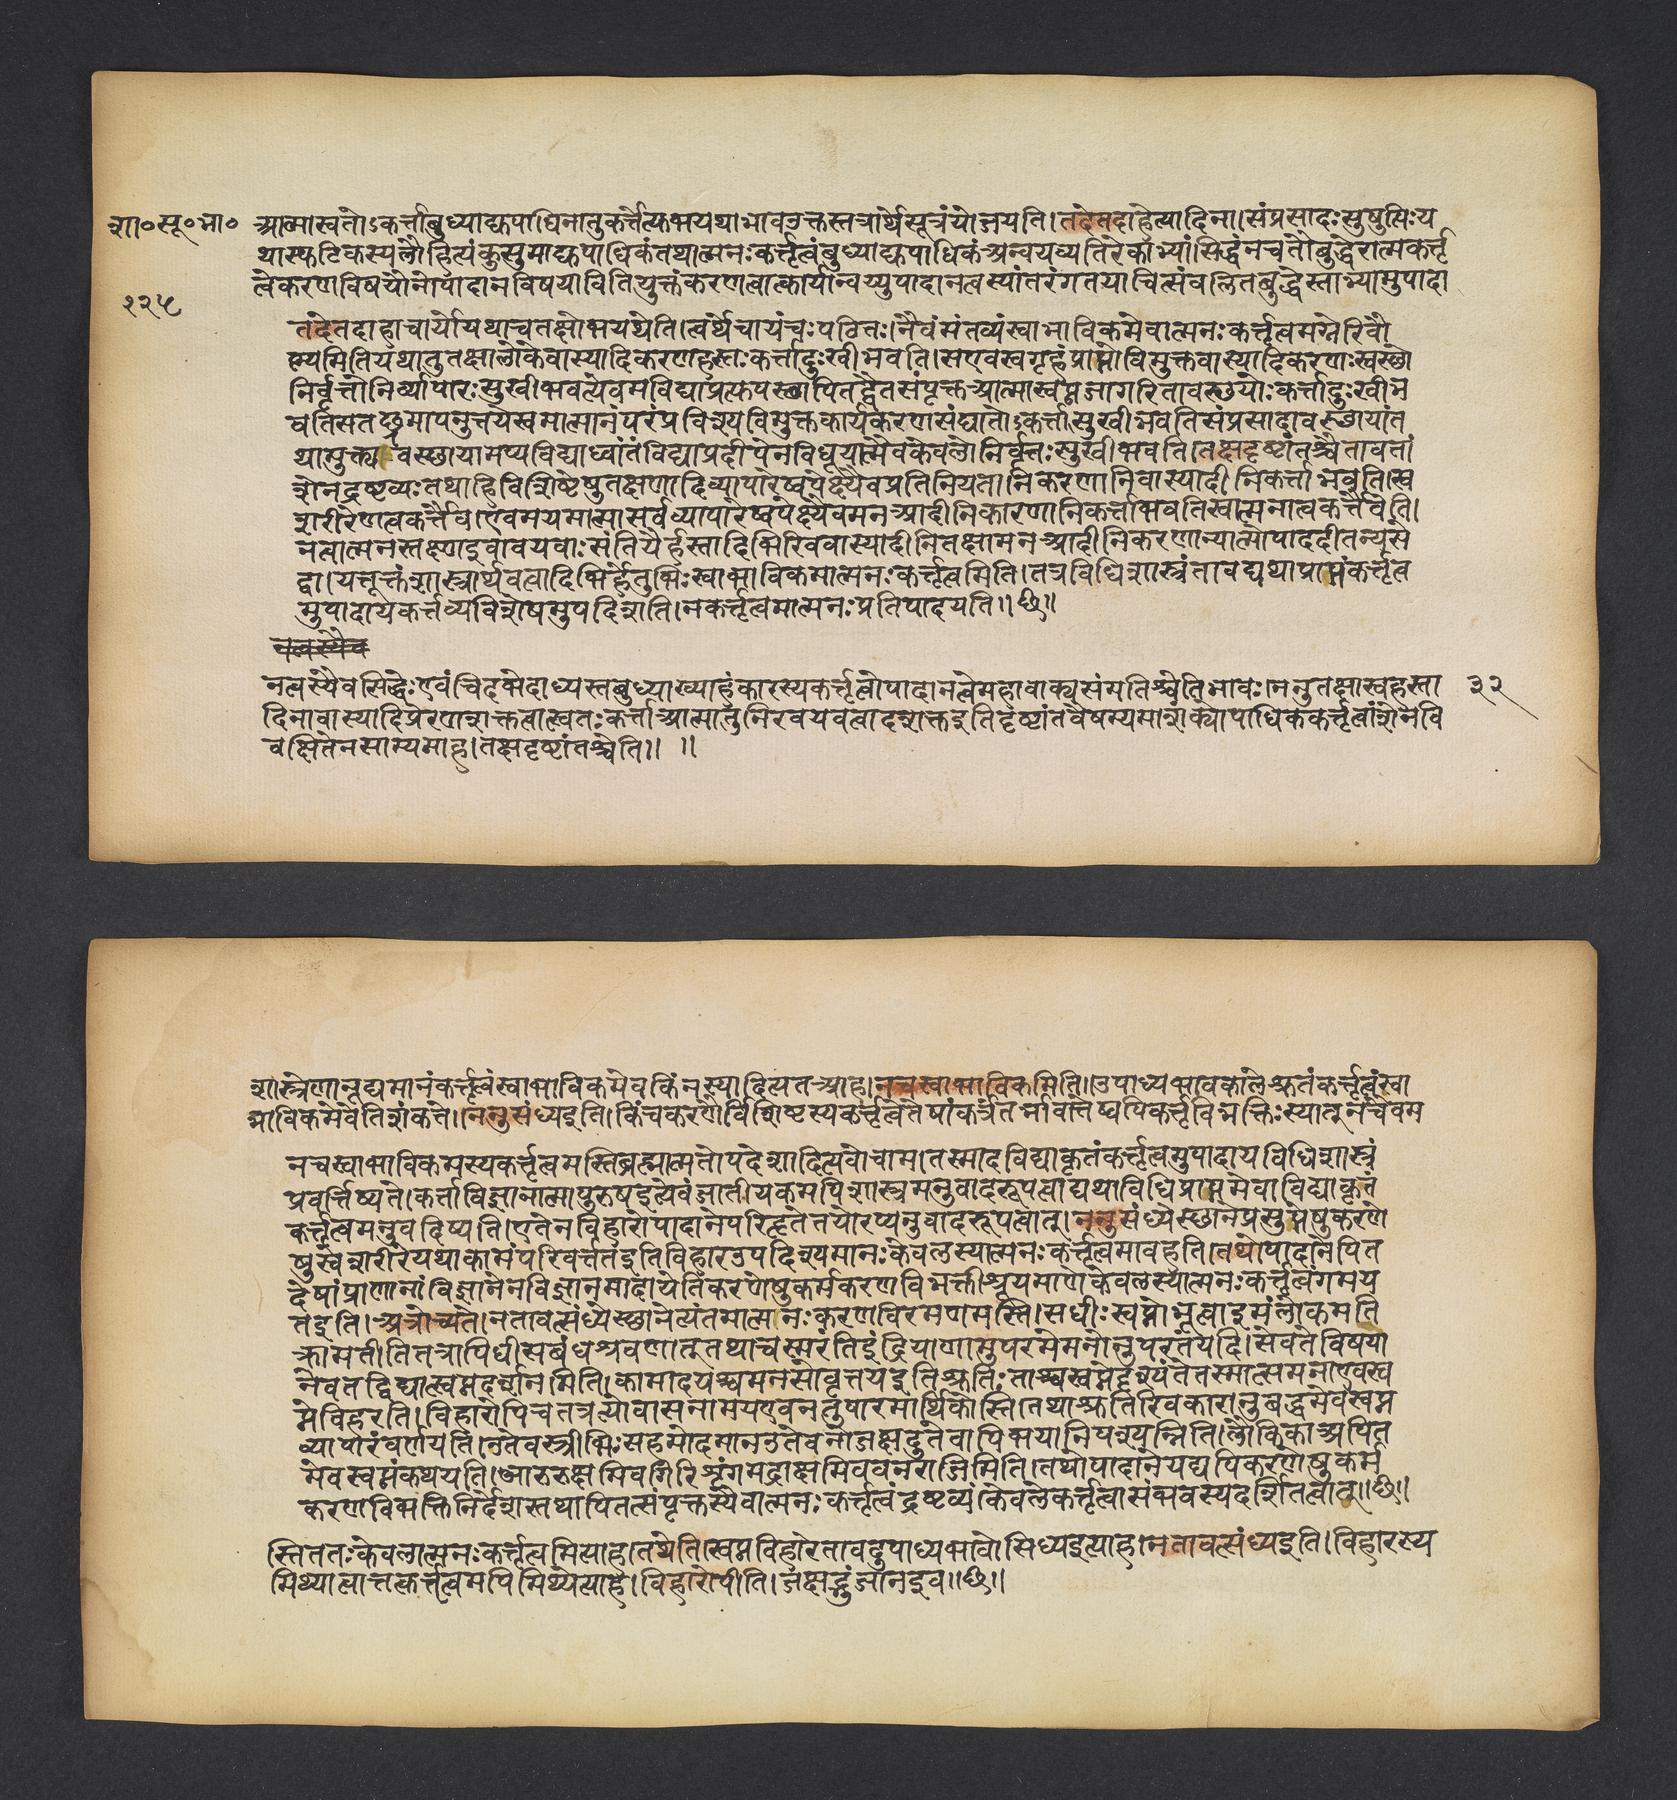 शा०सू०भा० आत्मास्वतोऽकर्त्ताबुध्याद्युपाधिनातुकर्त्तेत्युभयथाभावउक्तस्तत्रार्थेसूत्रंयोजयति।तदेतदाहेत्यादिना।संप्रसादःसुषुप्तिःय
थास्फटिकस्यलौहित्यंकुसुमाद्युपाधिकंतथात्मनःकर्त्तृत्वंबुध्याद्युपाधिकंअन्वयव्यतिरेकाभ्यांसिद्धंनचतौबुद्धेरात्मकर्तृ
त्वेकरणविषयौनोपादानविषयावितियुक्तंकरणत्वात्कार्यान्वय्युपादानत्वस्यांतरंगतयाचित्संवलितबुद्धेस्ताभ्यामुपादा
२२५
तदेतदाहाचार्योयथाचतक्षोभयथेति।त्वर्थेचायंचःपठितः।नैवंमंतव्यंस्वाभाविकमेवात्मनःकर्त्तृत्वमग्नेरिवौ
ष्ण्यमितियथातुतक्षालोकेवास्यादिकरणहस्तःकर्त्तादुःखीभवति।सएवस्वगृहंप्राप्तोविमुक्तवास्यादिकरणःस्वस्थो
निर्वृत्तोनिर्व्यापारःसुखीभवत्येवमविद्याप्रत्युपस्थापितद्वैतसंपृक्तआत्मास्वप्नजागरितावस्थयोःकर्त्तादुःखीभ
वतिसतछ्रमापनुत्तयेस्वमात्मानंपरंप्रविश्यविमुक्तकार्यकरणसंघातोऽकर्त्तासुखीभवतिसंप्रसादावस्थायांत
थामुक्त्यवस्थायामप्यविद्याध्वांतंविद्याप्रदीपेनविधूयात्मैवकेवलोनिर्वृत्तःसुखीभवति।तक्षदृष्टांतश्चैतावतां
शेनद्रष्टव्यःतथाहिविशिष्टेषुतक्षणादिव्यापारेष्वपेक्ष्यैवप्रतिनियतानिकरणानिवास्यादीनिकर्त्ताभवतिस्व
शरीरेणत्वकर्त्तैव।एवमयमात्मासर्वव्यापारेष्वपेक्ष्यैवमनआदीनिकारणानिकर्त्ताभवतिस्वात्मनात्वकर्त्तैवेति।
नत्वात्मनस्तक्ष्णइवावयवाःसंतियैर्हस्तादिभिरिववास्यादीनितक्षामनआदीनिकरणान्यात्मोपाददीतन्यसे
द्वा।यत्तूक्तंशास्त्रार्थवत्वादिभिर्हेतुभिःस्वाभाविकमात्मनःकर्त्तृत्वमिति।तत्रविधिशास्त्रंतावद्यथाप्राप्तंकर्त्तृत्व
मुपादायकर्त्तव्यविशेषमुपदिशति।नकर्त्तृत्वमात्मनःप्रतिपादयति॥छ॥
नत्वस्यैव
नत्वस्यैवसिद्धेःएवंचिदभेदाध्यस्तबुध्याख्याहंकारस्यकर्त्तृत्वोपादानत्वेमहावाक्यसंमतिश्चेतिभावः।ननुतक्षास्वहस्ता ३२
दिनावास्यादिप्रेरणशक्तत्वात्स्वतःकर्त्ताआत्मातुनिरवयवत्वादशक्तइतिदृष्टांतवैषम्यमाशंक्यौपाधिककर्त्तृत्वांशेनवि
वक्षितेनसाम्यमाह।तक्षदृष्टांतश्चेति॥ ॥
शास्त्रेणानूद्यमानंकर्त्तृत्वंस्वाभाविकमेवकिंनस्यादित्यतआह।नचस्वाभाविकमिति।उपाध्यभावकालेश्रुतंकर्त्तृत्वंस्वा
भाविकमेवेतिशंकते।ननुसंध्यइति।किंचकरणैर्विशिष्टस्यकर्त्तृत्वेतेषांकर्त्रंतर्भावात्तेष्वपिकर्त्तृविभक्तिःस्यात्नचैवम
नचस्वाभाविकमस्यकर्त्तृत्वमस्तिब्रह्मात्मतोपदेशादित्यवोचाम।तस्मादविद्याकृतंकर्त्तृत्वमुपादायविधिशास्त्रं
प्रवर्त्तिष्यते।कर्त्ताविज्ञानात्मापुरुषइत्येवंजातीयकमपिशास्त्रमनुवादरूपत्वाद्यथाविधिप्राप्तमेवाविद्याकृतं
कर्त्तृत्वमनुवदिष्यति।एतेनविहारोपादानेपरिहृतेतयोरप्यनुवादरूपत्वात्।ननुसंध्येस्थानेप्रसुप्तेषुकरणे
षुस्वेशरीरेयथाकामंपरिवर्त्ततइतिविहारउपदिश्यमानःकेवलस्यात्मनःकर्त्तृत्वमावहति।तथोपादानेपित
देषांप्राणानांविज्ञानेनविज्ञानमादायेतिकरणेषुकर्मकरणविभक्तीश्रूयमाणेकेवलस्यात्मनःकर्त्तृत्वंगमय
तइति।अत्रोच्यते।नतावत्संध्येस्थानेत्यंतमात्मनःकरणविरमणमस्ति।सधीःस्वप्नोभूत्वाइमंलोकमति
क्रामतीतितत्रापिधीसंबंधश्रवणात्तथाचस्मरंतिइंद्रियाणामुपरमेमनोनुपरतंयदि।सेवतेविषया
नेवतद्विद्यात्स्वप्नदर्शनमिति।कामादयश्चमनसोवृत्तयइतिश्रुतिःताश्चस्वप्नेदृश्यंतेतस्मात्समनाएवस्व
प्नेविहरति।विहारोपिचतत्रत्योवासनामयएवनतुपारमार्थिकोस्ति।तथाश्रुतिरिवकारानुबद्धमेवस्वप्न
व्यापारंवर्णयति।उतेवस्त्रीभिःसहमोदमानउतेवनोजक्षदुतेवापिभयानिपश्यन्निति।लौकिकाअपित
थैवस्वप्नंकथयति।आरुरुक्षमिवगिरिशृंगमद्राक्षमिववनराजिमिति।तथोपादानेयद्यपिकरणेषुकर्म
करणविभक्तिनिर्देशस्तथापितत्संपृक्तस्यैवात्मनःकर्त्तृत्वंद्रष्टव्यंकेवलेकर्त्तृत्वासंभवस्यदर्शितत्वात्॥छ॥
स्तिततःकेवलात्मनःकर्त्तृत्वमित्याह।तथेति।स्वप्नविहारेतावदुपाध्यभावोसिध्यइत्याह।नतावत्संध्यइति।विहारस्य
मिथ्यात्वात्तत्कर्त्तृत्वमपिमिथ्येत्याह।विहारोपीति।जक्षद्भुंजानइव॥छ॥